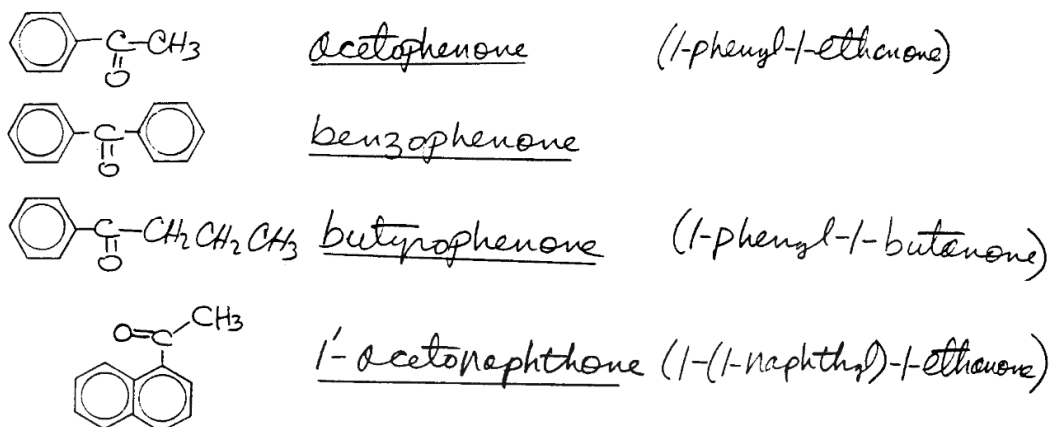 C CH3 O acetophenone (1-phenyl-1-ethanone)
C O benzophenone
C CH2CH2CH3 O butyrophenone (1-phenyl-1-butanone)
O=C CH3 1'-acetonaphthone (1-(1-naphthyl)-1-ethanone)